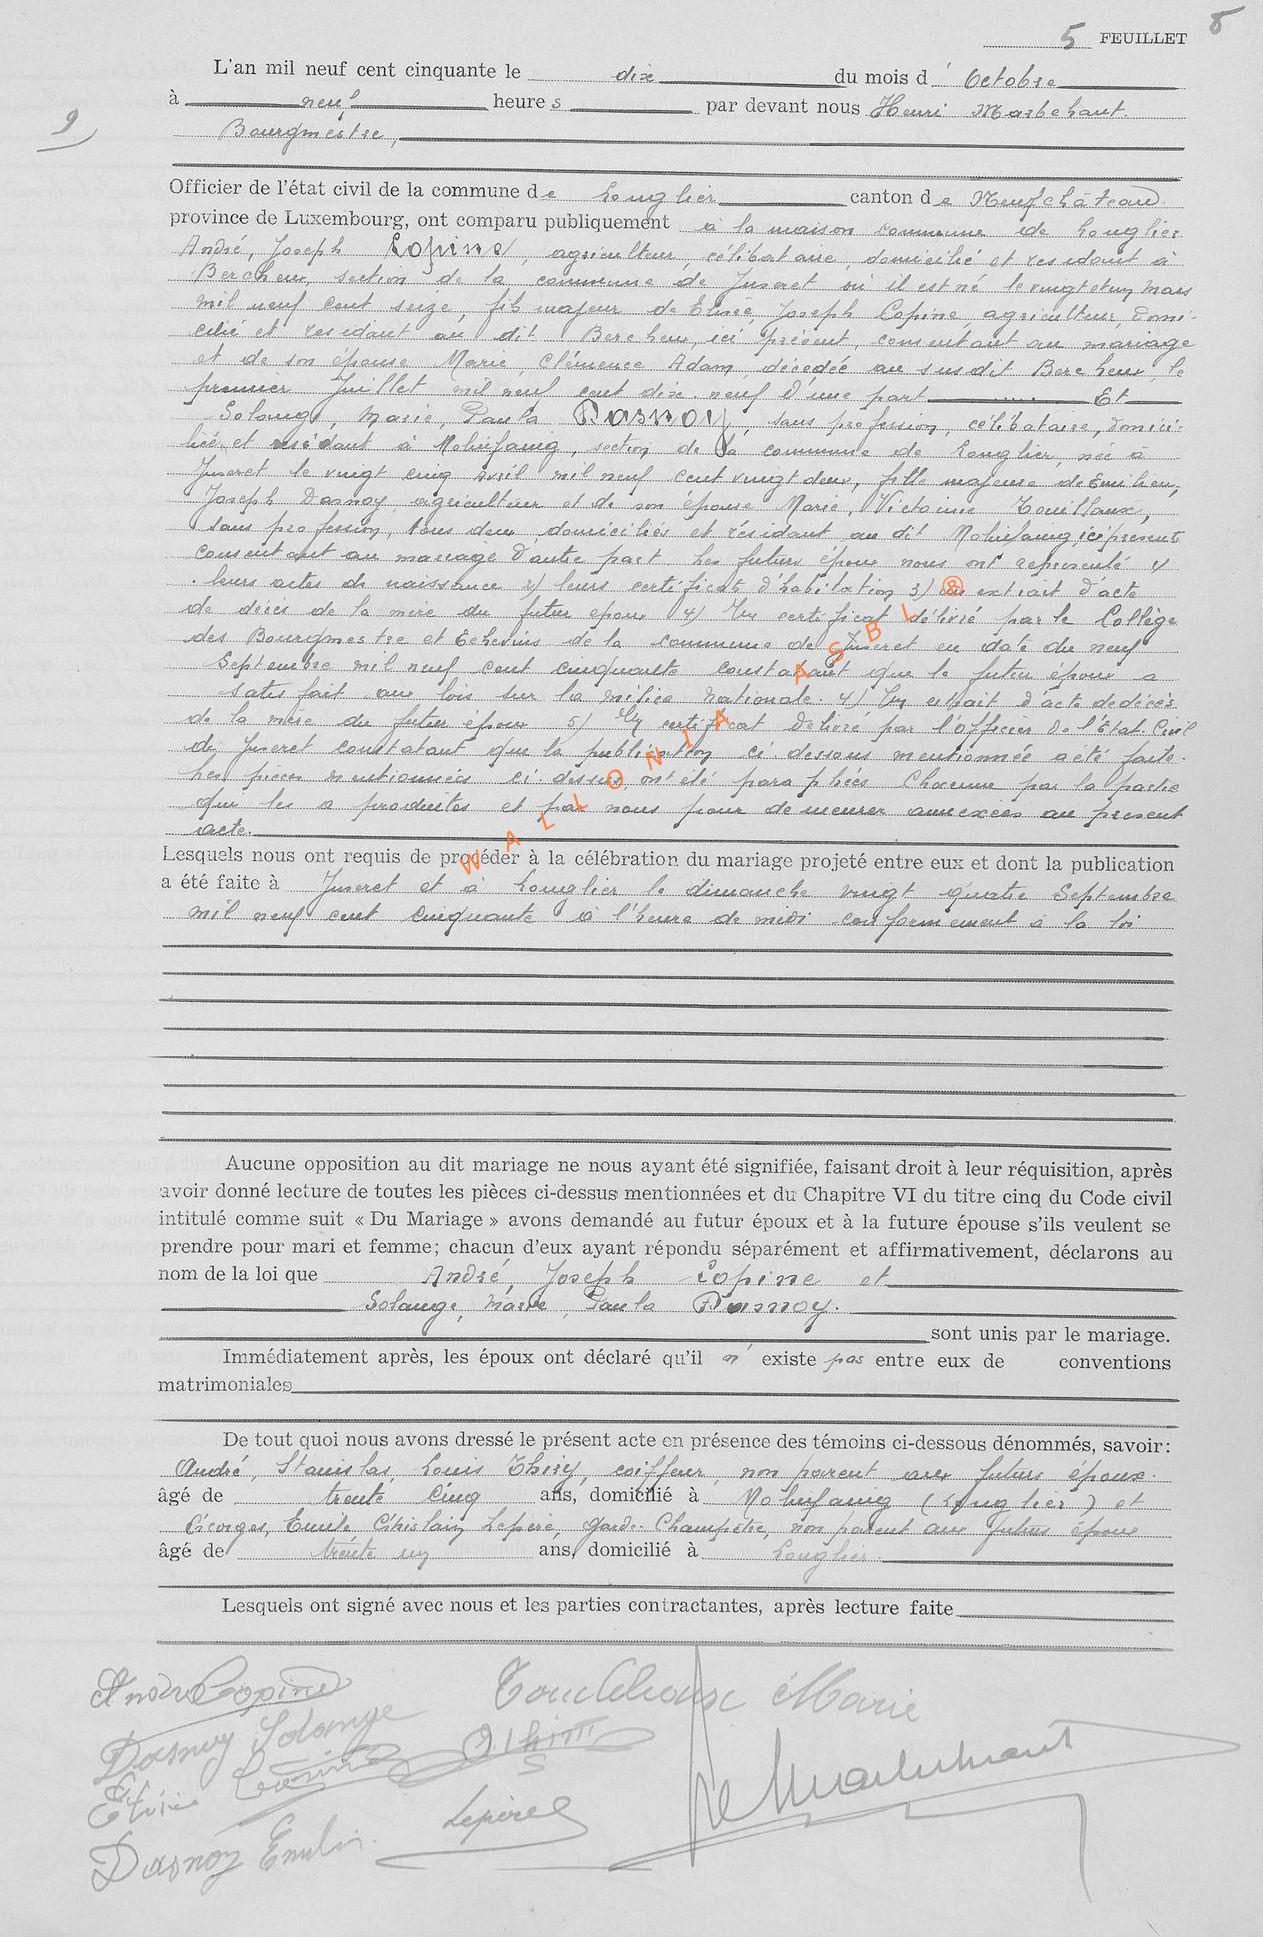 5 FEUILLET 8
L'an mil neuf cent cinquante le dix du mois d' Octobre
à neuf heures par devant nous Henri Marbehant
9
Bourgmestre,
Officier de l'état civil de la commune de Longlier canton de Neufchâteau
province de Luxembourg, ont comparu publiquement à la maison commune de Longlier
André, Joseph Copine, agriculteur, célibataire, domicilié et résidant à
Bercheux, section de la commune de Juseret où il est né le vingt et un mars
mil neuf cent seize, fils majeur de Elisée Joseph Copine, agriculteur, domi-
cilié et résidant au dit Bercheux, ici présent, consentant au mariage
et de son épouse Marie, Clémence Adam, décédée au susdit Bercheux, le
premier Juillet mil neuf cent dix-neuf d'une part Et
Solange, Marie, Paula Dasnoy, sans profession, célibataire, domici-
liée et résidant à Molinfaing, section de la commune de Longlier, née à
Juseret le vingt cinq avril mil neuf cent vingt deux, fille majeure de Emilien,
Joseph Dasnoy, agriculteur et de son épouse Marie, Victorine
sans profession, tous deux domiciliés et résidant au dit Molinfaing, ici présents
consentant au mariage d'autre part Les futurs époux nous ont représenté 1/
leurs actes de naissance 2/ leurs certificats d'habitation 3/ un extrait d'acte
de décès de la mère du futur époux 4/ Un certificat délivré par le Collège
des Bourgmestre et Echevins de la commune de Juseret en date du neuf
Septembre mil neuf cent cinquante constatant que le futur époux a
satisfait aux lois sur la milice nationale. 4/ Un extrait d'acte de décès
de la mère du futur époux 5/ Un certificat délivré par l'officier de l'Etat-Civil
de Juseret constatant que la publication ci-dessous mentionnée a été faite.
Les pièces mentionnées ci-dessus ont été paraphées chacune par la partie
qui les a produites et par nous pour demeurer annexées au présent
acte.
WALLONIA ASBL ®
Lesquels nous ont requis de procéder à la célébration du mariage projeté entre eux et dont la publication
a été faite à Juseret et à Longlier le dimanche vingt quatre Septembre
mil neuf cent cinquante à l'heure de midi conformément à la loi
Aucune opposition au dit mariage ne nous ayant été signifiée, faisant droit à leur réquisition, après
avoir donné lecture de toutes les pièces ci-dessus mentionnées et du Chapitre VI du titre cinq du Code civil
intitulé comme suit « Du Mariage » avons demandé au futur époux et à la future épouse s'ils veulent se
prendre pour mari et femme; chacun d'eux ayant répondu séparément et affirmativement, déclarons au
nom de la loi que André, Joseph Copine et
Solange, Marie, Paula Dasnoy.
sont unis par le mariage.
Immédiatement après, les époux ont déclaré qu'il n' existe pas entre eux de conventions
matrimoniales
De tout quoi nous avons dressé le présent acte en présence des témoins ci-dessous dénommés, savoir:
André, Stanislas, Louis Thiry, coiffeur, non parent aux futurs époux.
âgé de trente cinq ans, domicilié à Molinfaing (Longlier) et
Georges, Emile, Ghislain Lepère, Garde-Champêtre, non parent aux futurs époux
âgé de trente un ans, domicilié à Longlier.
Lesquels ont signé avec nous et les parties contractantes, après lecture faite
André Copine
Marie
Dasnoy Solange
Thiry
Elisée Copine
Lepère
Dasnoy Emilien